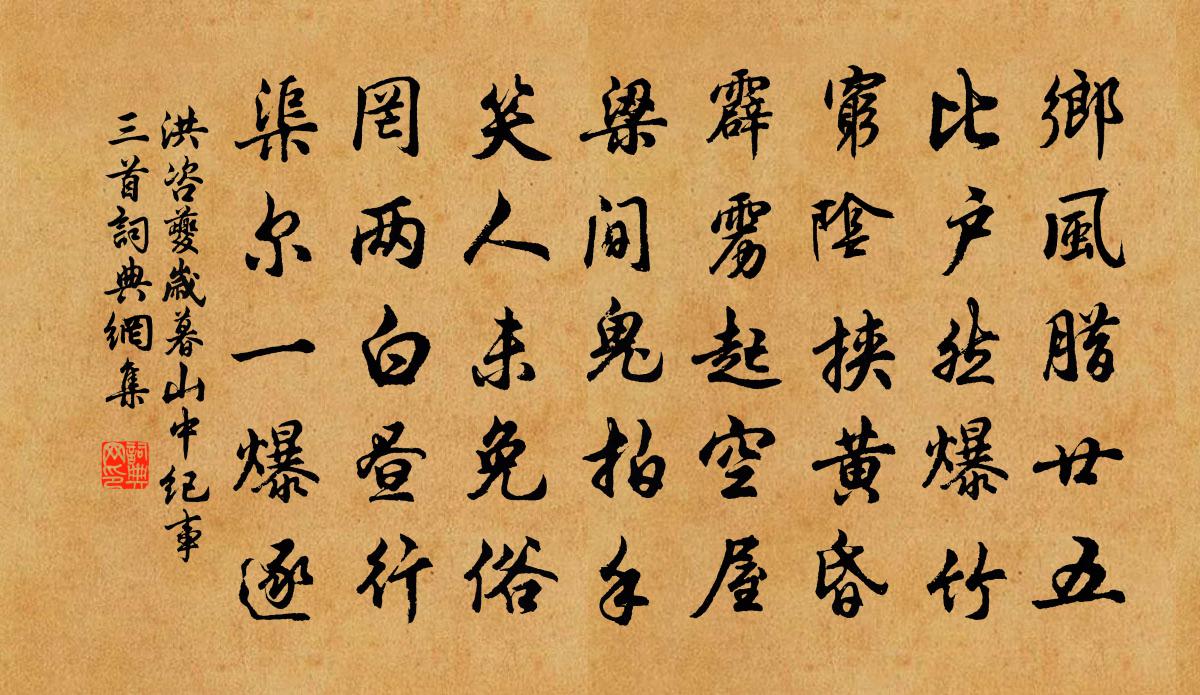 鄉風腊廿五
比户然爆竹
窮陰挾黃昏
霹雳起空屋
梁間鬼拍手
笑人未免俗
罔两白昼行
渠尔一爆逐
洪咨夔歲暮山中纪事
三首詞典網集
詞典
网印